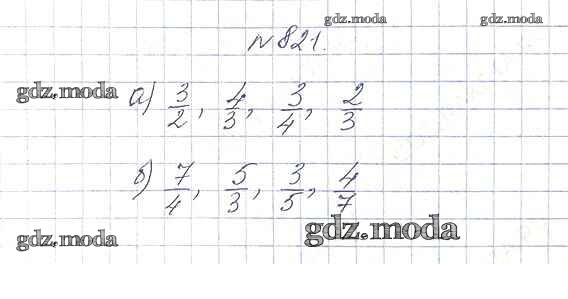 gdz.moda gdz.moda
№ 821.
gdz.moda
а) 3/2, 4/3, 3/4, 2/3
б) 7/4, 5/3, 3/5, 4/7
gdz.moda gdz.moda